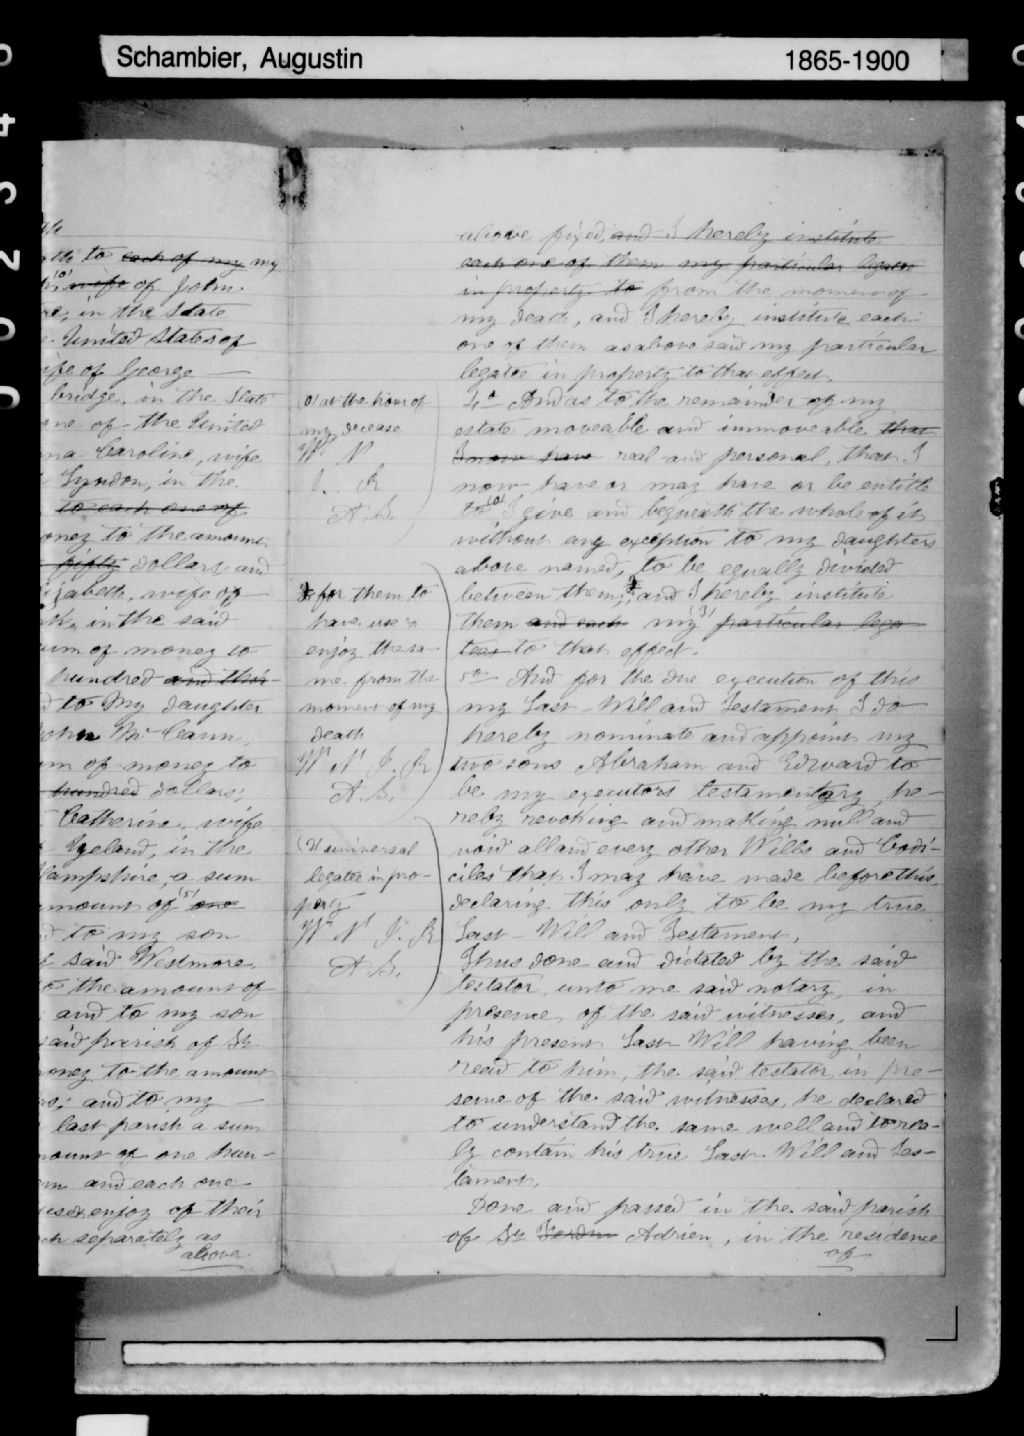 Schambier, Augustin 1865-1900
to each of my my
wife of John
in the State
United States of
wife of George
bridge, in the State
one of the United
Caroline, wife
Lyndon, in the
to each one of
money to the amount
fifty dollars and
izabeth, wife of
in the said
sum of money to
hundred and thir-
to My daughter
John Mc Cann,
sum of money to
hundred dollars;
Catherine, wife
Izeland, in the
Hampshire, a sum
amount of (5) one
to my son
said Westmore
to the amount of
and to my son
said parish of St
money to the amount
and to my
last parish a sum
amount of one hun-
and each one
enjoy of their
each separately as
above
(0) at the hour of
my decease
W. N
J. R
A. S.
for them to
have use &
enjoy the sa-
me from the
moment of my
death
W N J. R
A. S.
universal
legatee in pro-
perty
W N J. R
A. S.
above fixed, and I hereby institute
each one of them my particular legatee
in property to from the moment of
my death, and I hereby institute each
one of them as above said my particular
legatee in property to that effect.
4o And as to the remainder of my
estate moveable and immoveable that
I now have real and personal, that I
now have or may have or be entitle
to (0) I give and bequeath the whole of it
without any exception to my daughters
above named, to be equally divided
between them; and I hereby institute
them and each my particular lega
tees to that effect.
5o And for the due execution of this
my Last Will and Testament I do
hereby nominate and appoint my
two sons Abraham and Edward to
be my executors testamentary, he-
reby revoking and making null and
void all and every other Wills and Codi-
ciles that I may have made before this,
declaring this only to be my true
Last Will and Testament.
Thus done and dictated by the said
testator, unto me said notary, in
presence of the said witnesses, and
his present Last Will having been
read to him, the said testator, in pre-
sence of the said witnesses, he declared
to understand the same well and to rea-
ly contain his true Last Will and Tes-
tament.
Done and passed in the said parish
of St Adrien, in the residence
of